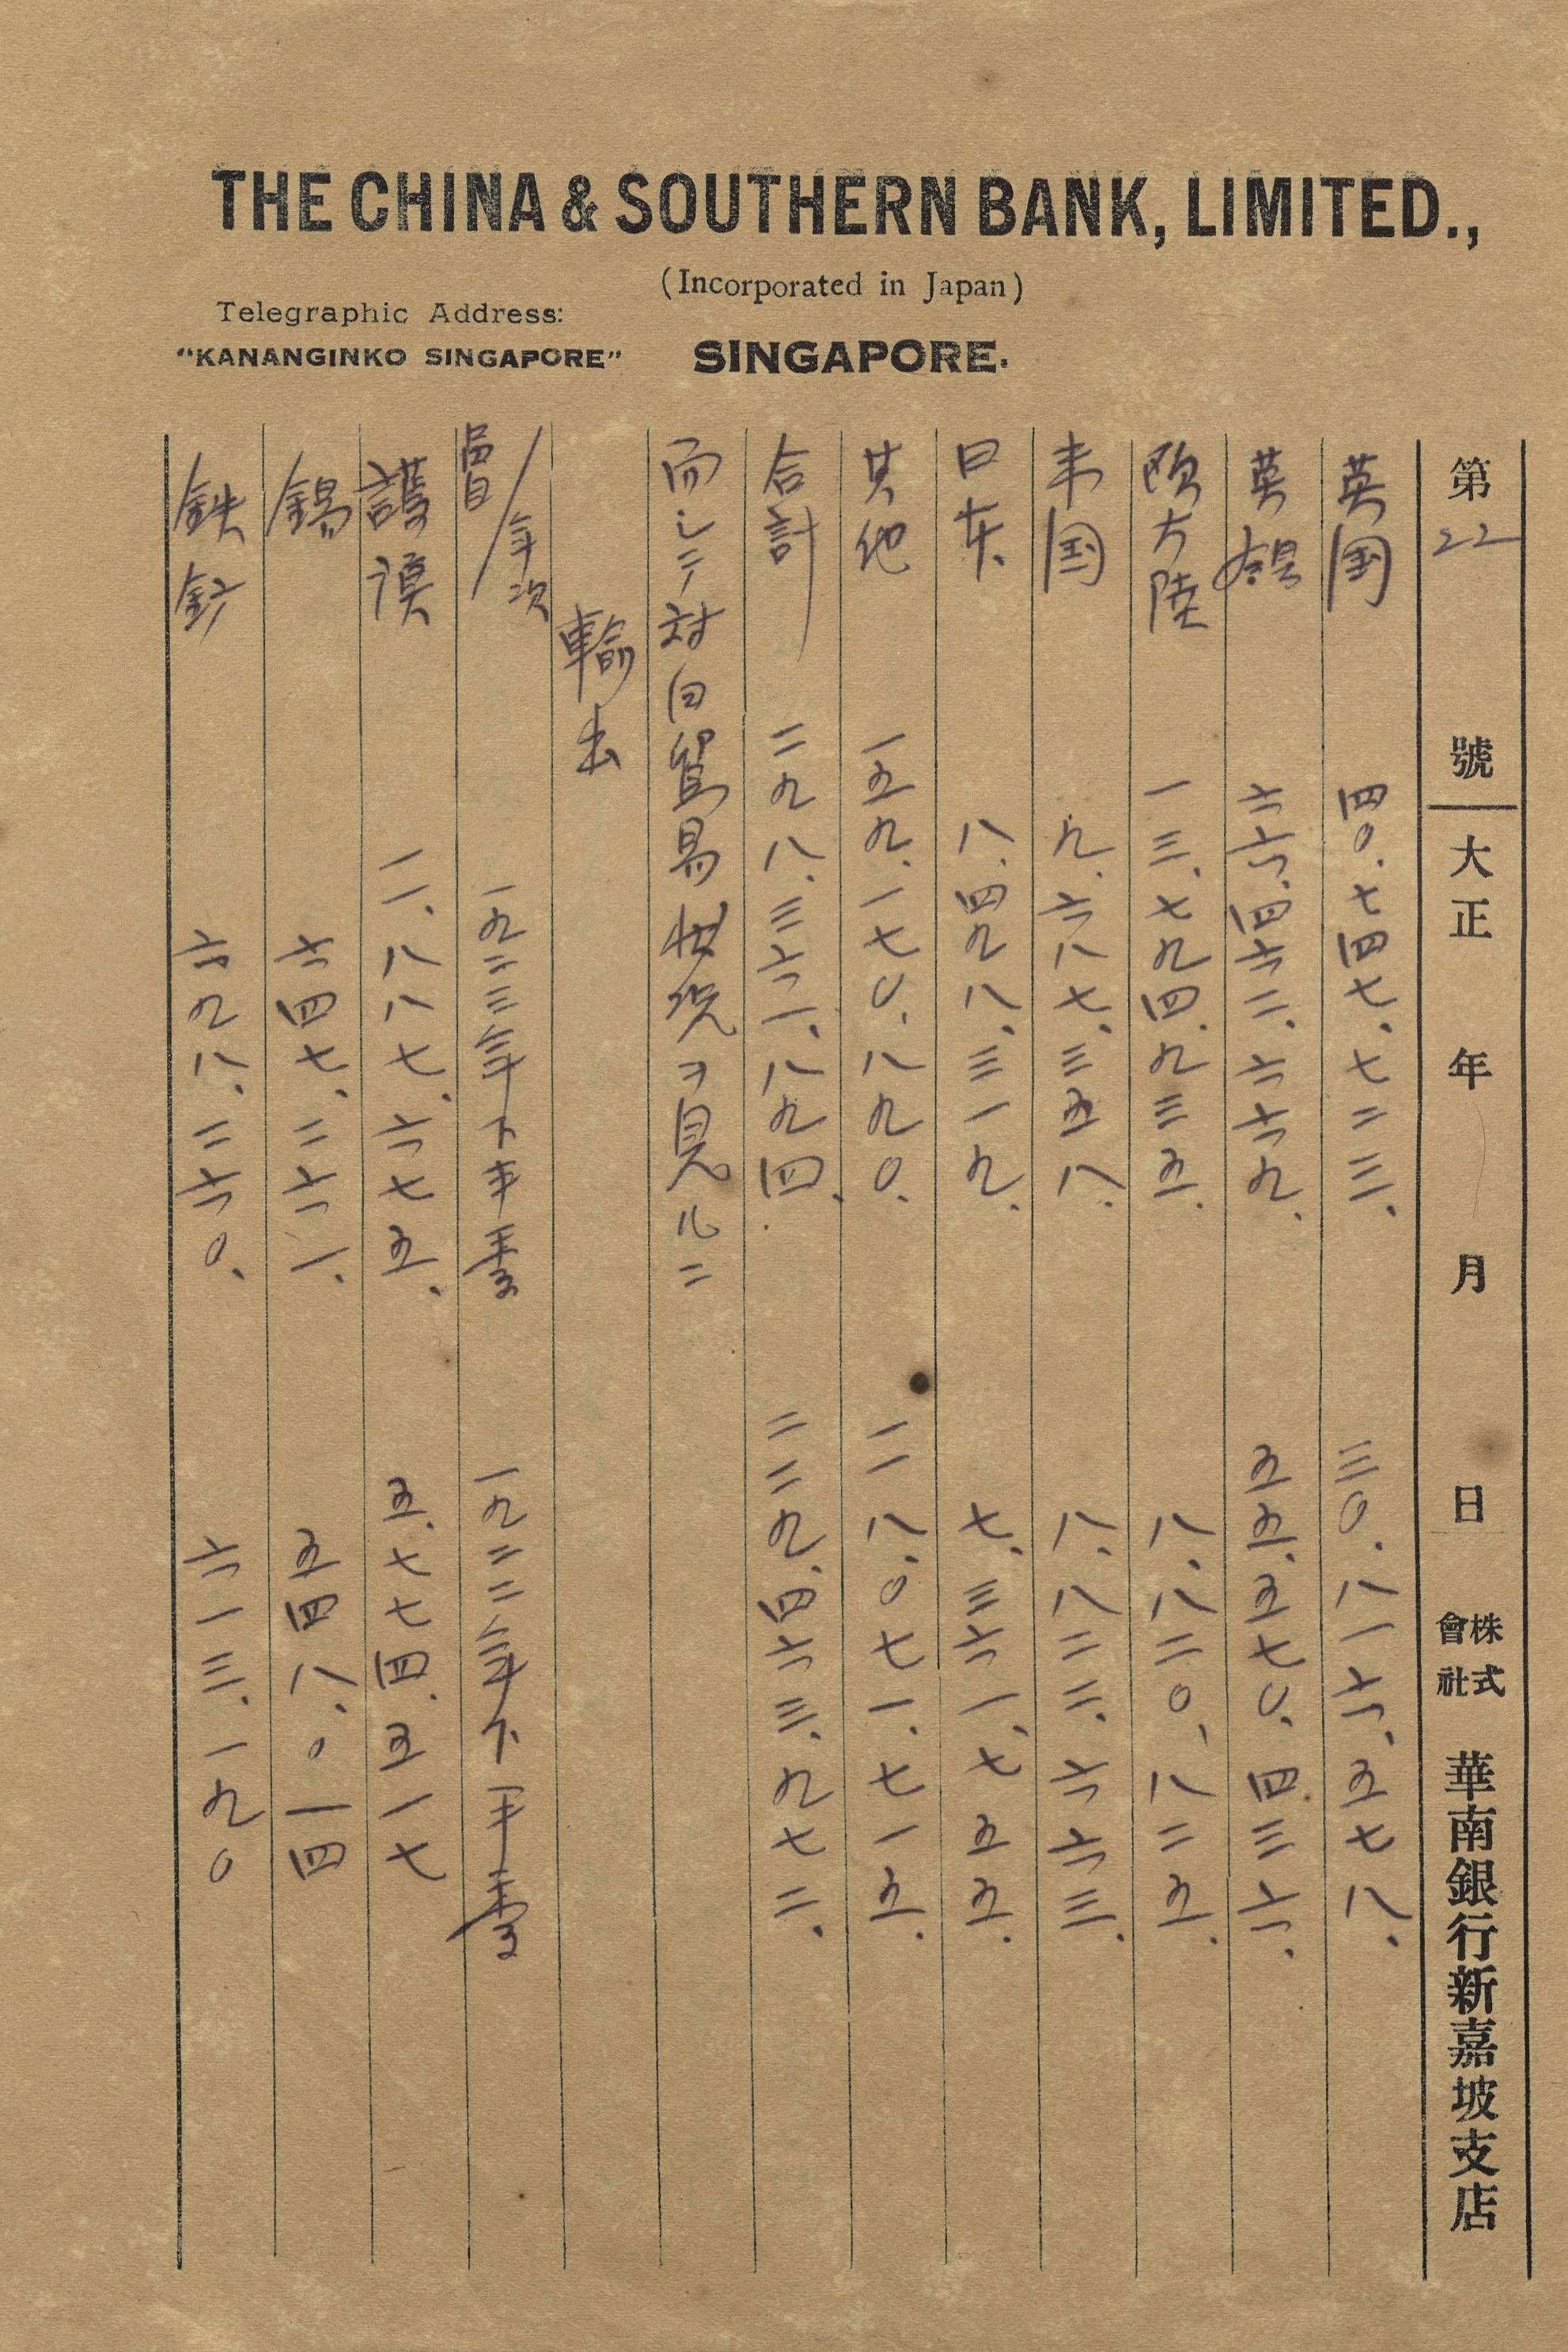 THE CHINA & SOUTHERN BANK, LIMITED.,
(Incorporated in Japan)
Telegraphic Address:
"KANANGINKO SINGAPORE"
SINGAPORE.
第22號 大正 年 月 日 株式會社 華南銀行新嘉坡支店
英国 四〇.七四七.七二三. 三〇.八一六.五七八.
英領 六六.四六二.六六九. 五五.五七〇.四三六.
欧大陸 一三.七九四.九三五. 八.八二〇.八二五.
米国 九.六八七.三五八. 八.八二二.六六三.
日本 八.四九八.三一九. 七.三六一.七五五.
其他 一五九.一七〇.八九〇. 一一八.〇七一.七一五.
合計 二九八.三六一.八九四. 二二九.四六三.九七二.
而シテ対日貿易状況ヲ見ルニ
輸出
品目/年次 一九二三年下半季 一九二二年下半季
護謨 一一.八八七.六七五. 五.七七四.五一七
錫 六四七.二六一. 五四八.〇一四
鉄鉱 六九八.二六〇. 六一三.一九〇